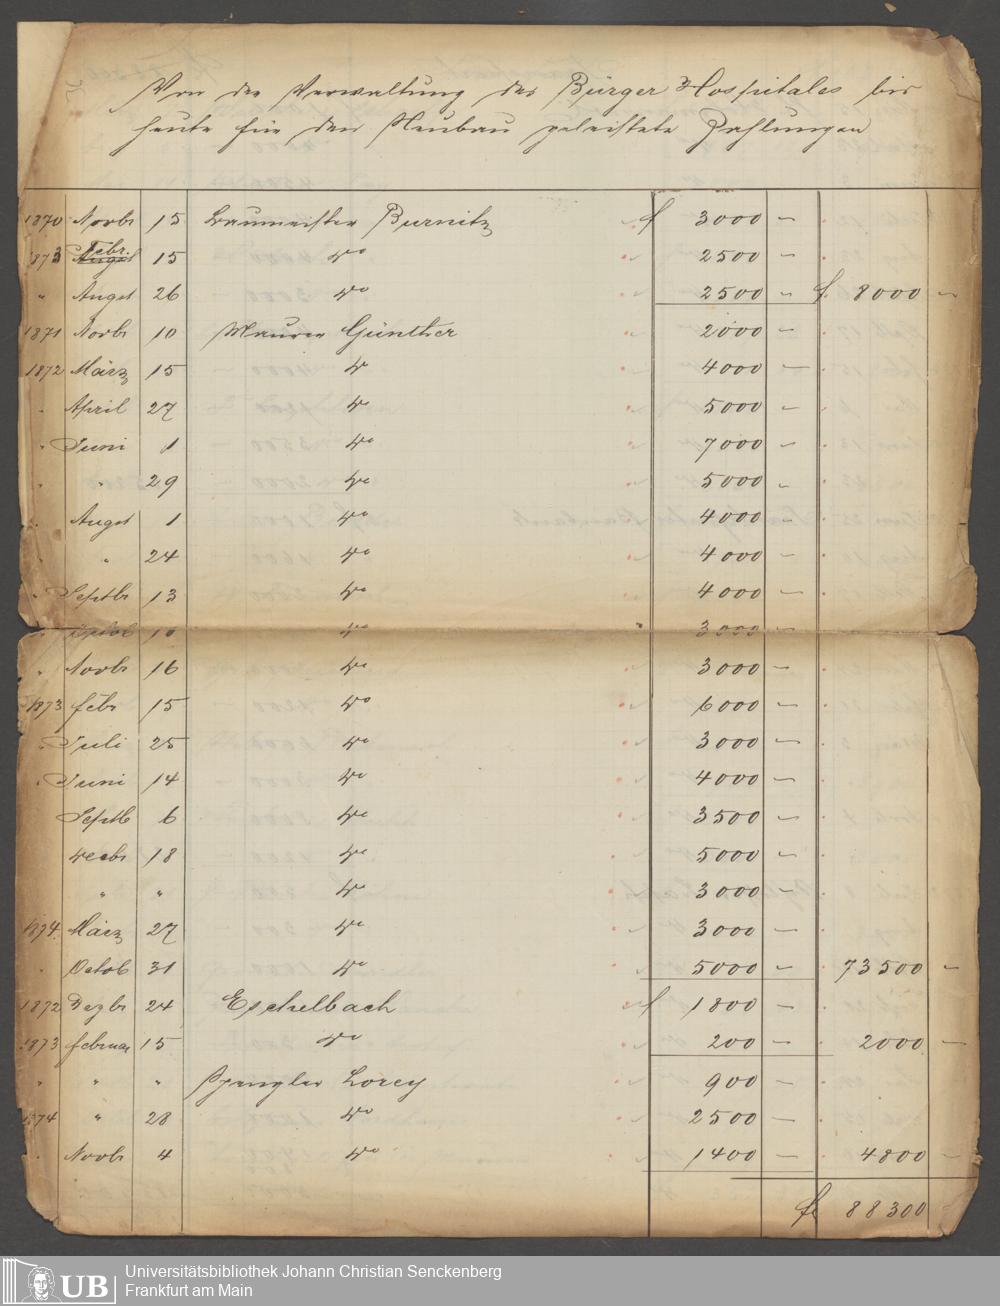 Von der Verwaltung des Bürger Hospitales bis
heute für den Neubau geleistete Zahlungen
1870 Novbr 15 Baumeister Burnitz f 3000 –
1873 Febr. August 15 do 2500 –
" August 26 do 2500 – f 8000 –
1871 Novbr 10 Maurer Günther 2000 –
1872 März 15 do 4000 –
" April 27 do 5000 –
" Juni 1 do 7000 –
" " 29 do 5000 –
" August 1 do 4000 –
" " 24 do 4000 –
" Septbr 13 do 4000 –
" Octob 10 do 3000 –
" Novbr 16 do 3000 –
1873 febr 15 do 6000 –
" Juli 25 do 3000 –
" Juni 14 do 4000 –
Septb 6 do 3500 –
Decbr 18 do 5000 –
" " do 3000 –
1874 März 27 do 3000 –
" Octob 31 do 5000 – 73500 –
1872 Dezbr 24 Eschelbach f 1800 –
1873 februar 15 do 200 – 2000 –
" " " Spengler Lorey 900 –
1874 " 28 do 2500 –
" Novbr 4 do 1400 – 4800 –
f 88300
UB Universitätsbibliothek Johann Christian Senckenberg
Frankfurt am Main